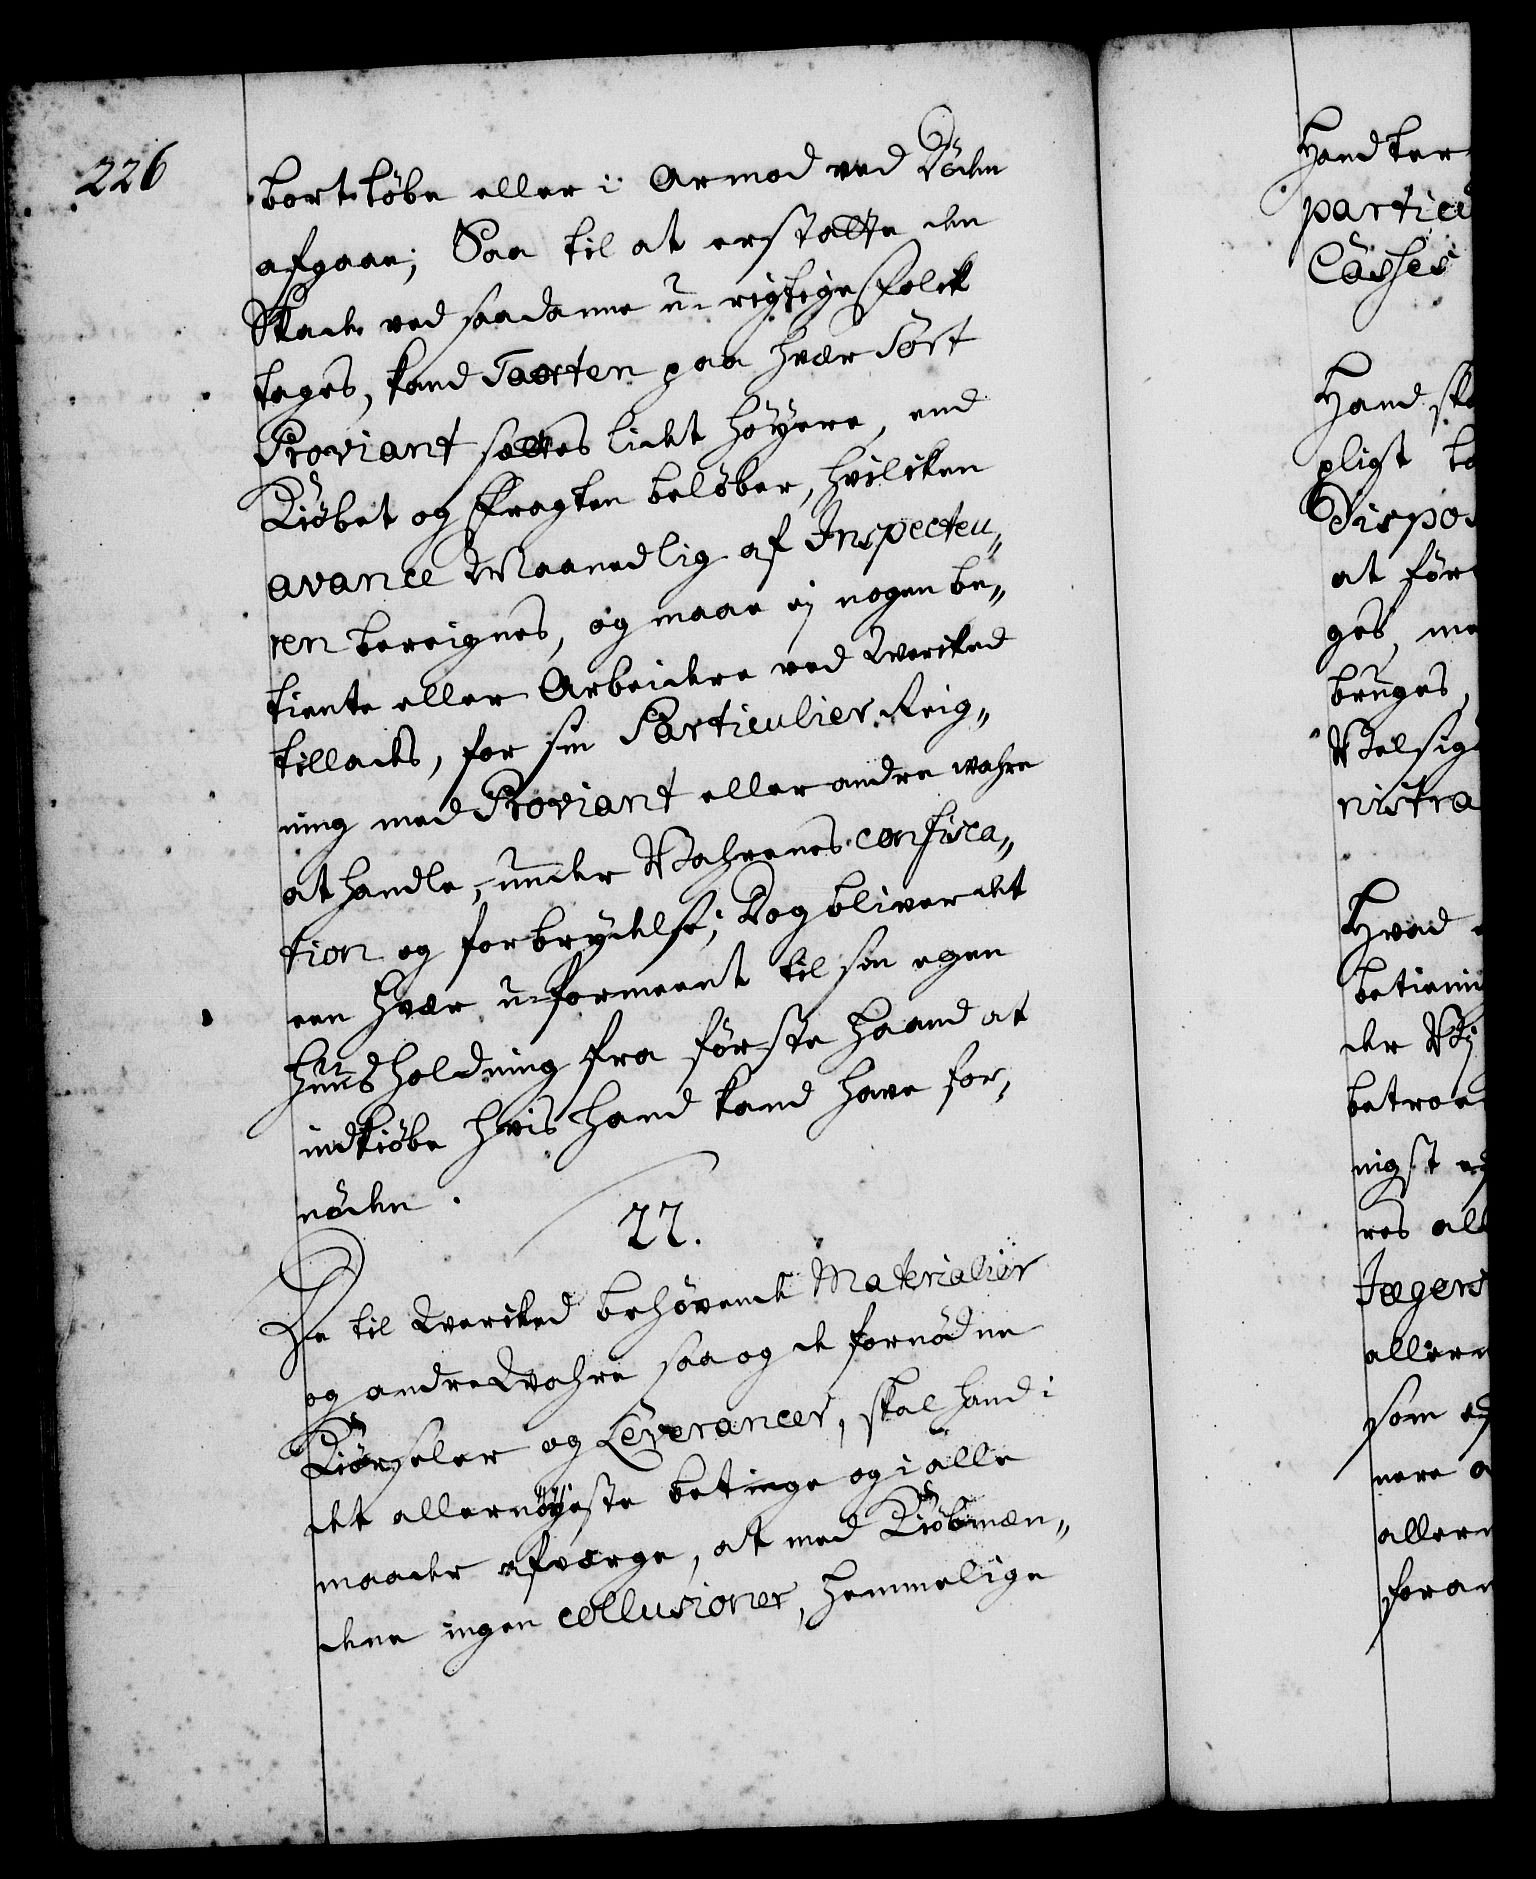 226
bort löbe eller i Armod ved Döden
afgaae; Saa til at erstatte den
Skade ved saadanne u-rigtige Folck
tages, kand Taxten paa hver Sort
Proviant settes lidet höyere, end
Kiöbet og Fragten belöber, hvilcken
avance Maanedlig af Inspecteu„
ren bereignes, og maae ej nogen be„
tiente eller Arbeidere ved Wercked
tillades, for sin Particulier Reig„
ning med Proviant eller andre wahre
at handle, under Wahrenes confisca„
tion og forbrydelse; Dog bliver det
een hver u-formeent til sin egen
huusholdning fra förste Haand at
indkiöbe hvis hand kand have for„
nöden.
22.
De til Wercked behövende Materialier
og andre Wahre saa og de fornödne
Kiörseler og Leverancer, skal hand i
det allernöyeste betinge og i alle
maader afverge, at med Kiöbmæn„
dene ingen collusioner, hemmelige
Hand ker
particu
Casses
Hand ska
pligt
Dispos
at för
ges, me
bruges,
Velsig
nistra
Hvad
betienin
der Vij
betroe
nigst
res all
Jægers
aller
som
nere
aller
foran